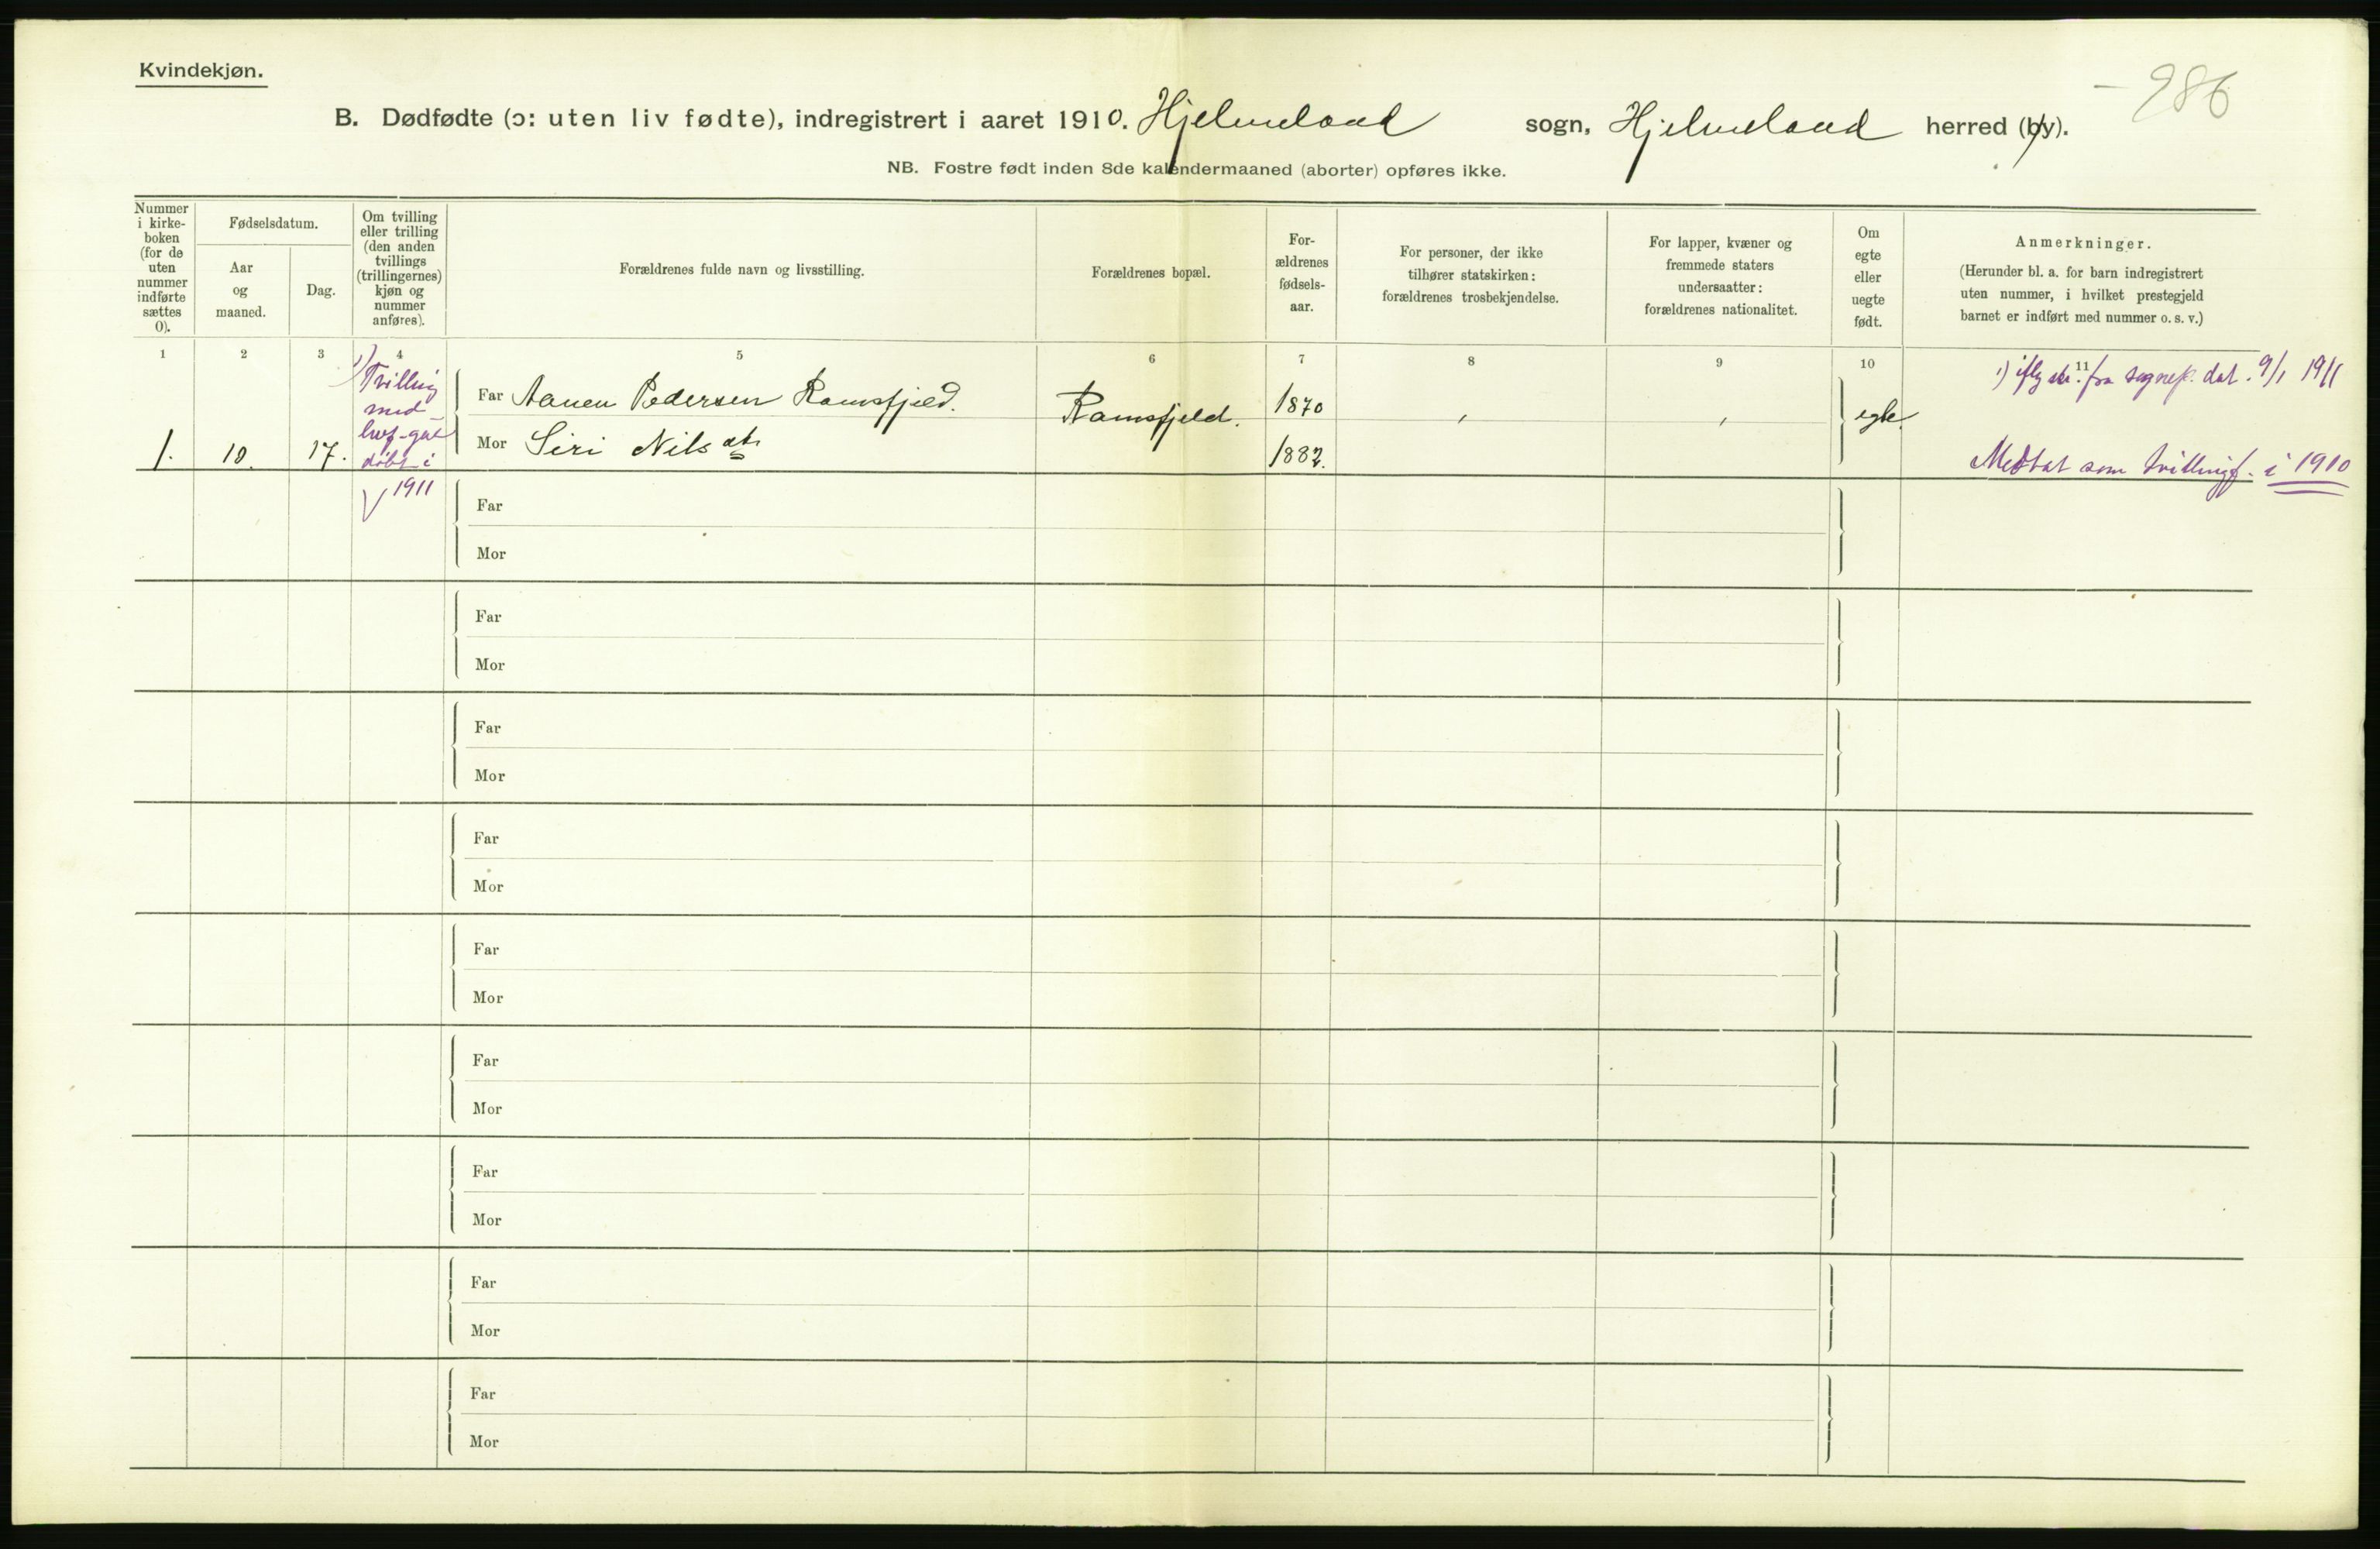 Kvindekjøn.
- 986
B. Dødfødte (ɔ: uten liv fødte), indregistrert i aaret 1910. Hjelmeland sogn, Hjelmeland herred (by).
NB. Fostre født inden 8de kalendermaaned (aborter) opføres ikke.
Nummer
i kirke-
boken
(for de
uten
nummer
indførte
sættes
0).
Fødselsdatum.
Aar
og
maaned.
Dag.
Om tvilling
eller trilling
(den anden
tvillings
(trillingernes)
kjøn og
nummer
anføres).
Forældrenes fulde navn og livsstilling.
Forældrenes bopæl.
For-
ældrenes
fødsels-
aar.
For personer, der ikke
tilhører statskirken:
forældrenes trosbekjendelse.
For lapper, kvæner og
fremmede staters
undersaatter:
forældrenes nationalitet.
Om
egte
eller
uegte
født.
Anmerkninger.
(Herunder bl. a. for barn indregistrert
uten nummer, i hvilket prestegjeld
barnet er indført med nummer o. s. v.)
1 2 3 4 5 6 7 8 9 10 11
1. 10. 17.
1) Tvilling
med
døbt i
1911
Far Aanen Pedersen Ramsfjeld.
Mor Siri Nilsdtr
Ramsfjeld.
1870
1882.
egte.
1) fra sognepr. dat. 9/1 1911
Medtat som tvillingf. i 1910
Far
Mor
Far
Mor
Far
Mor
Far
Mor
Far
Mor
Far
Mor
Far
Mor
Far
Mor
Far
Mor